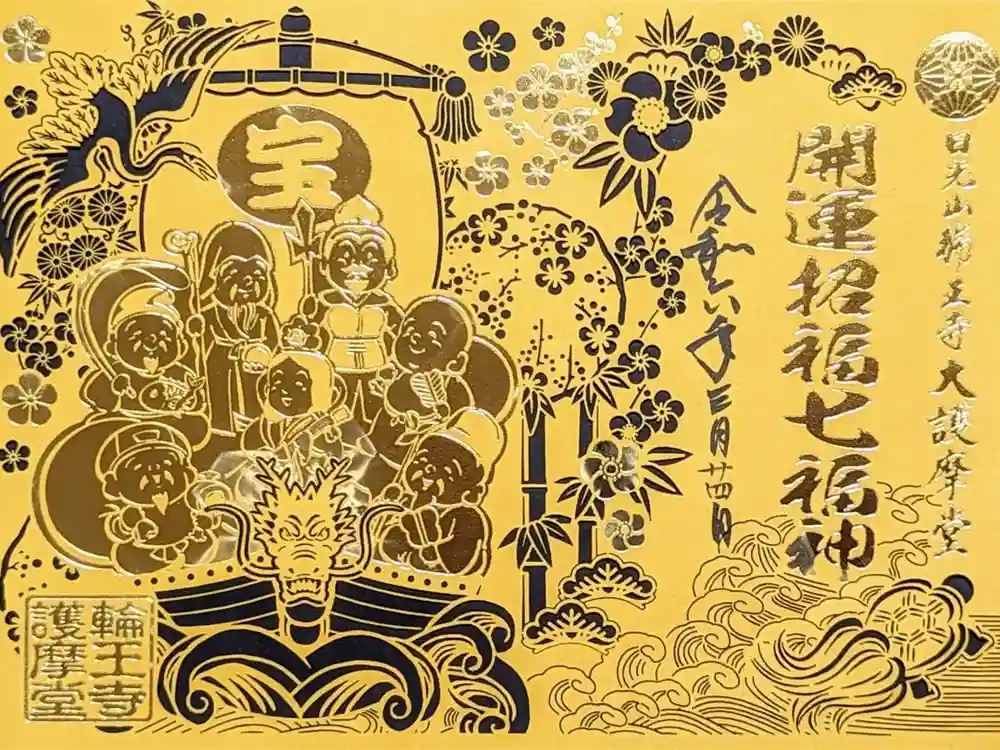 日光山輪王寺大護摩堂
開運招福七福神
令和六年三月廿四日
宝
輪王寺
護摩堂